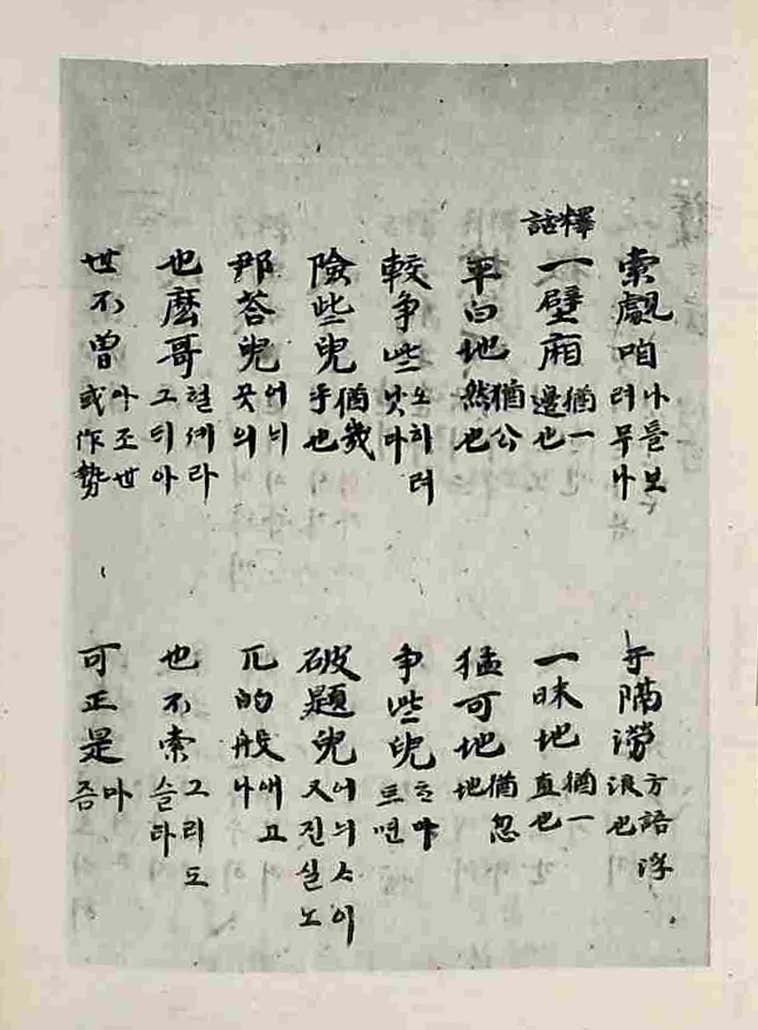 索覷咱 나를보러무나
乎隔澇 方語浮浪也
釋話
一壁廂 猶一邊也
一昧地 猶一直也
平白地 猶公然也
猛可地 猶忽地
較争些 오히려낫다
争些兒 흐마트면
險些兒 猶幾乎也
破題兒 어늬ᄉ이又진실노
那荅兒 어늬곳의
兀的般 애고나
也麽哥 헐셰라그듸아
也不索 그리도슬타
世不曾 아조世或作勢
可正是 마즘